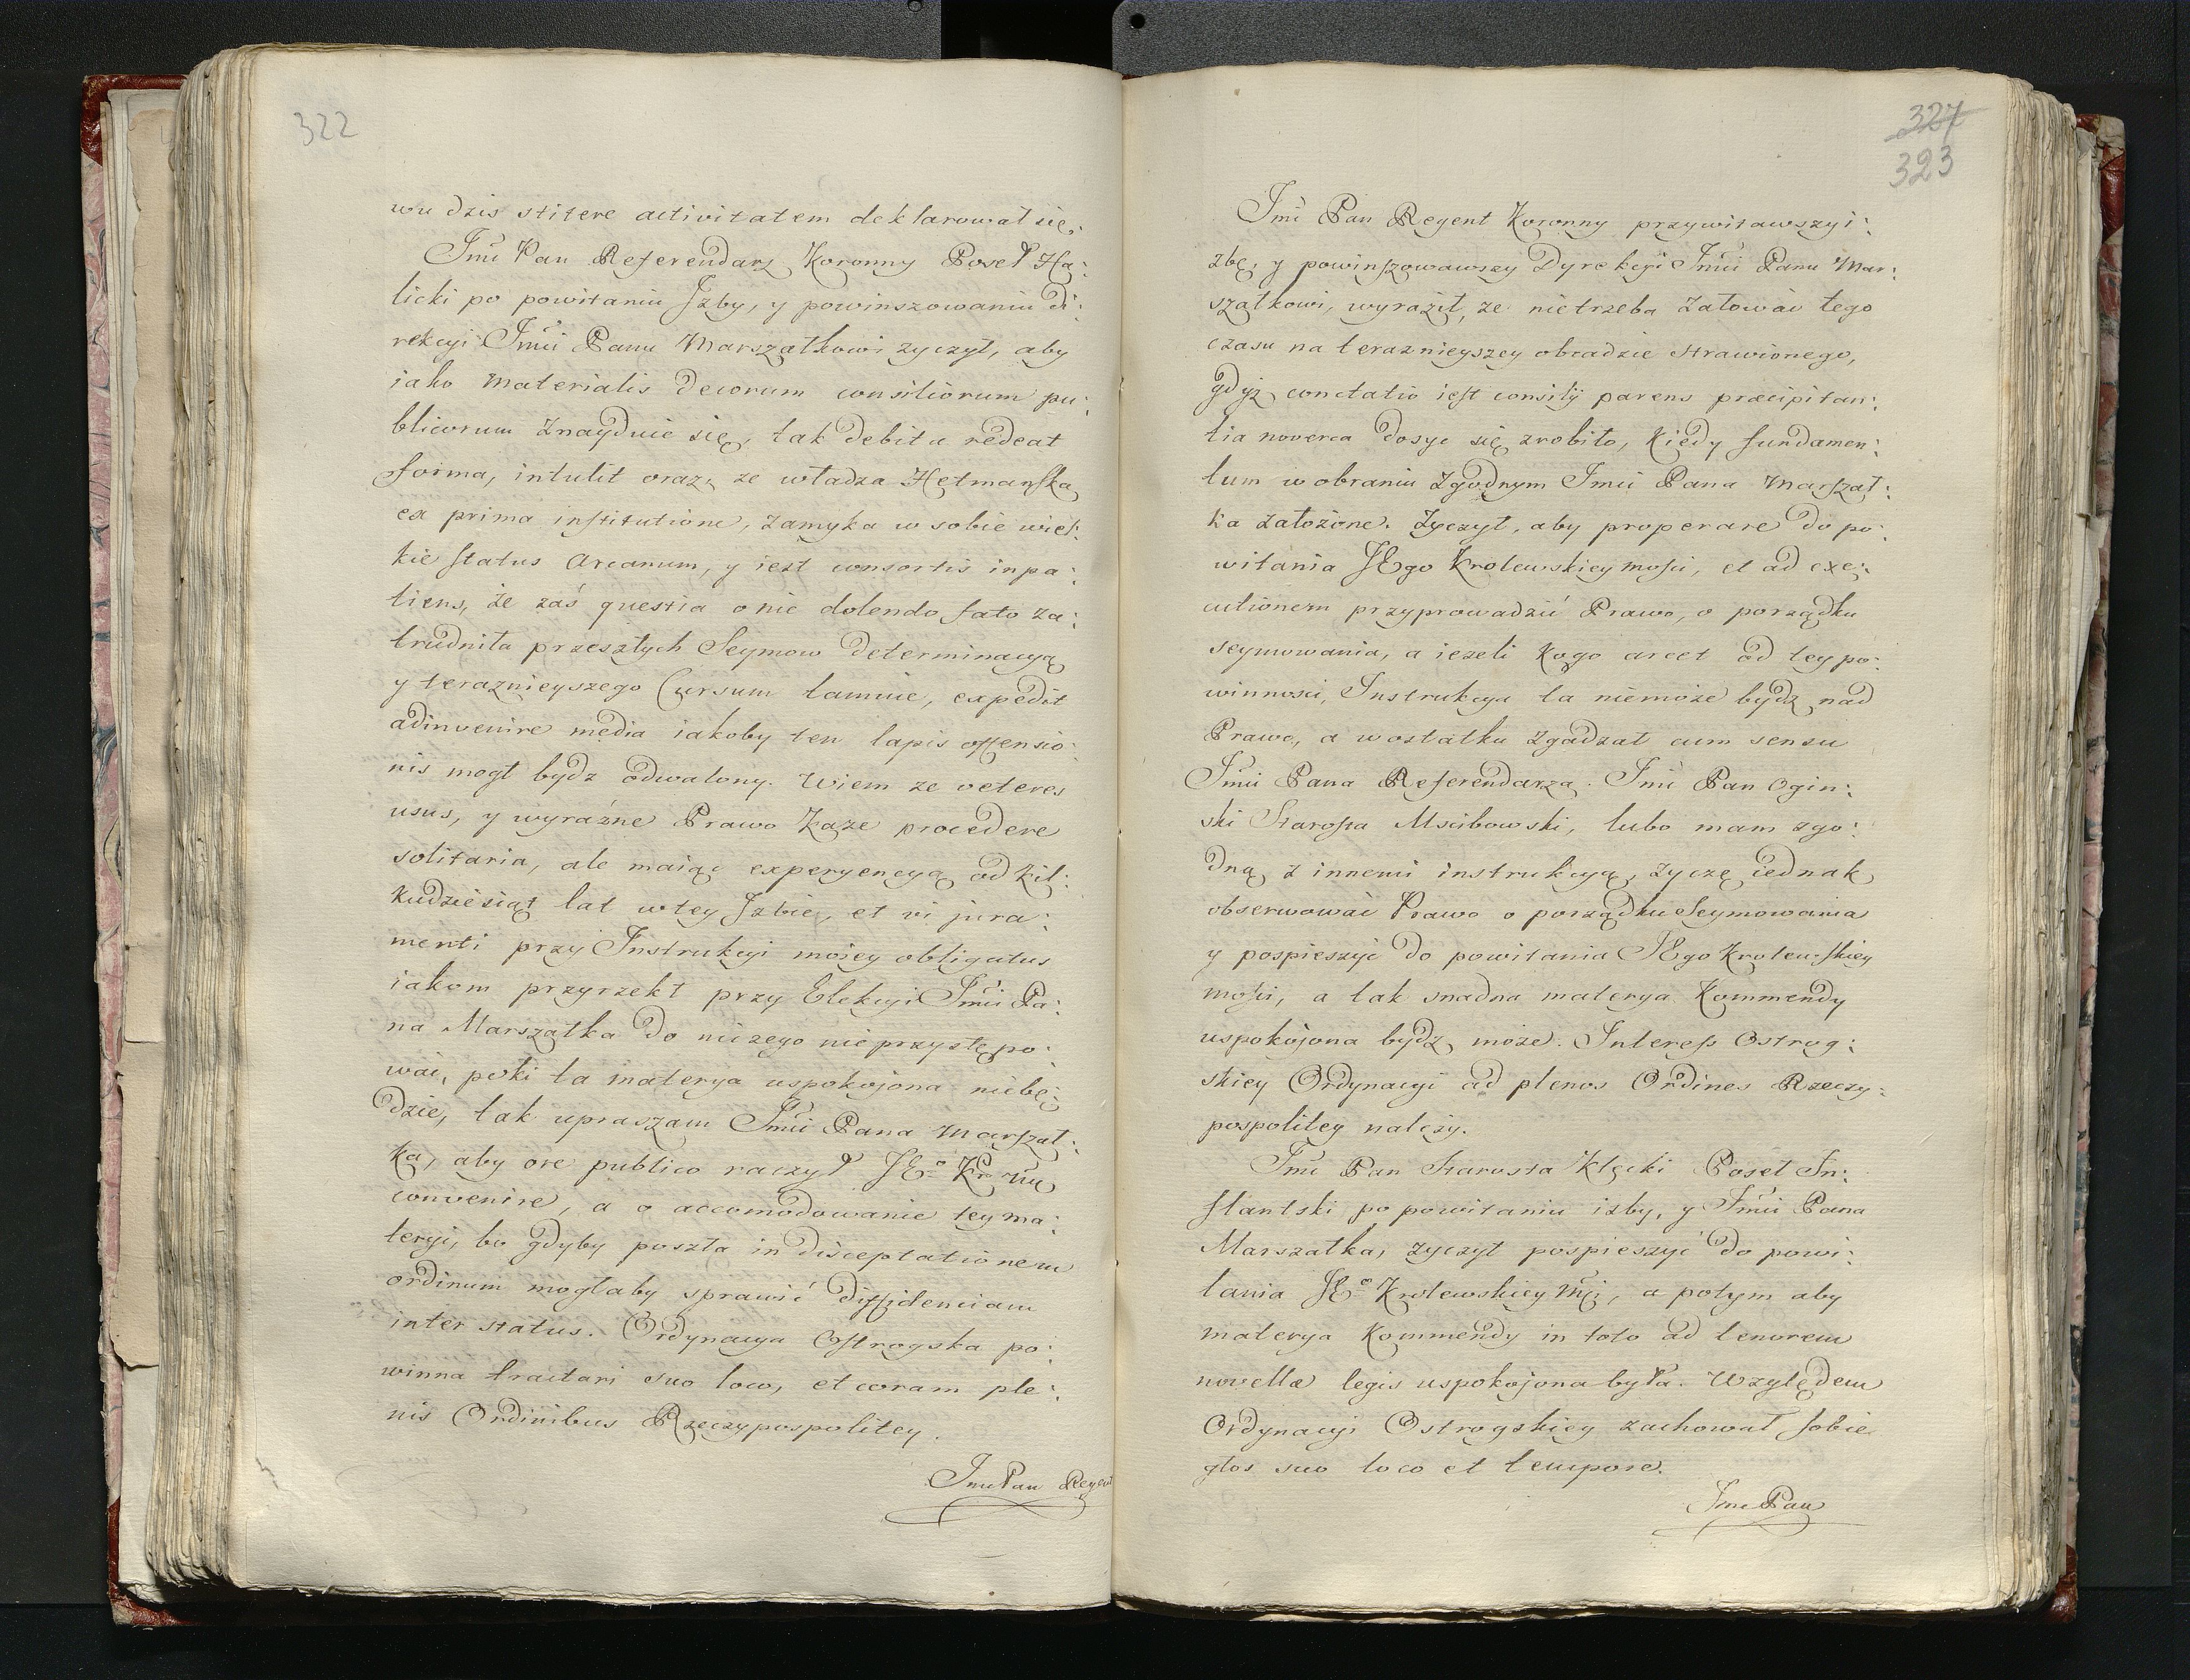 322
wu dzis stitere activitatem deklarował się.
Jmć Pan Referendarz Koronny Poseł Ha:
licki po powitaniu Jzby, y powinszowaniu di:
rekcyi Jmći Panu Marszałkowi zyczył, aby
iako materialis decorum consiliorum pu:
blicorum znayduie się, tak debita redeat
forma, intulit oraz, ze władza Hetmanska
ex prima institutione, zamyka w sobie wiel:
kie status Arcanum, y iest consortis inpa:
tiens, że zaś questia o nie dolendo fato za:
trudniła przeszłych Seymow determinacyą
y teraznieyszego Cursum tamuie, expedit
adinvenire media iakoby ten lapis offensio:
nis mogł bydz odwalony. Wiem ze veteres
usus, y wyraźne Prawo każe procedere
solitaria, ale maiąc experyencyą od kil:
kudziesiąt lat w tey Jzbie, et vi jura:
menti przy Instrukcyi moiey obligatus
iakom przyrzekł przy Elekcyi Jmći Pa:
na Marszałka do niczego nieprzystępo:
wać, poki ta materya uspokojona niebę:
dzie, tak upraszam Jmći Pana Marszał:
ka, aby ore publico raczył JEo Kr Mći
convenire, a o accomodowanie tey ma:
teryi, bo gdyby poszła in disceptationem
ordinum mogłaby sprawić diffidenciam
inter status. Ordynacya Ostrogska po:
winna tractari suo loco, et coram ple:
nis Ordinibus Rzeczypospolitey.
Jmć Pan Regent
327
323
Jmć Pan Regent Koronny przywitawszy i:
zbę, y powinszowawszy Dyrekcyi Jmći Panu Mar:
szałkowi, wyraził, ze nietrzeba załować tego
czasu na teraznieyszey obradzie strawionego,
gdyż conctatio iest consilij parens præcipitan:
tia noverca dosyc się zrobiło, kiedy fundamen:
tum w obraniu zgodnym Jmći Pana Marszał:
ka założone. Zyczył, aby properare do po:
witania JEgo Krolewskiey mości, et ad exe:
cutionem przyprowadzić Prawo, o porządku
seymowania, a iezeli kogo arcet od tey po:
winności, Instrukcya ta niemoże bydz nad
Prawo, a w ostatku zgadzał cum sensu
Jmći Pana Referendarza. Jmć Pan Ogin:
ski Starosta Mscibowski, lubo mam zgo:
dną z innemi instrukcyą, zyczę iednak
obserwować Prawo o porządku Seymowania
y pospieszyć do powitania JEgo Krolewskiey
mości, a tak snadna materya Kommendy
uspokojona bydz może. Interess Ostrog:
skiey Ordynacyi ad plenos Ordines Rzeczy:
pospolitey należy.
Jmć Pan Starosta Klęcki Poseł In:
flantski po powitaniu izby, y Jmći Pana
Marszałka, zyczył pospieszyć do powi:
tania JEo Krolewskiey Mci, a potym aby
materya Kommendy in toto ad tenorem
novellæ legis uspokojona była. Względem
Ordynacyi Ostrogskiey zachował sobie
głos suo loco et tempore.
Jmć Pan